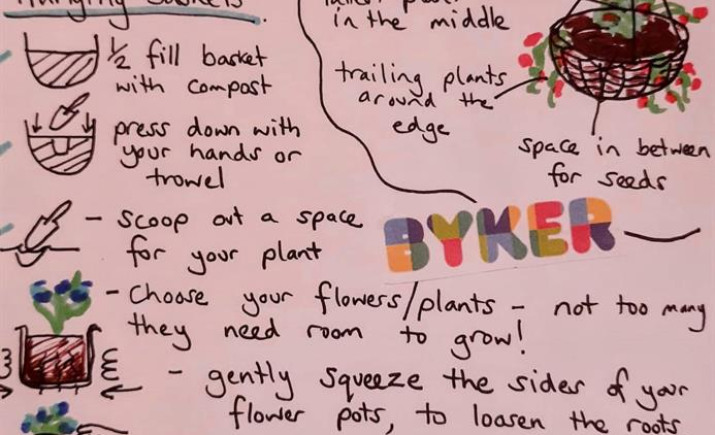 Hanging Baskets.
½ fill basket
with compost
press down with
your hands or
trowel
- scoop out a space
for your plant
- Choose your flowers/plants - not too many
they need room to grow!
- gently squeeze the sides of your
flower pots, to loosen the roots
in the middle
trailing plants
around the
edge
space in between
for seeds
BYKER